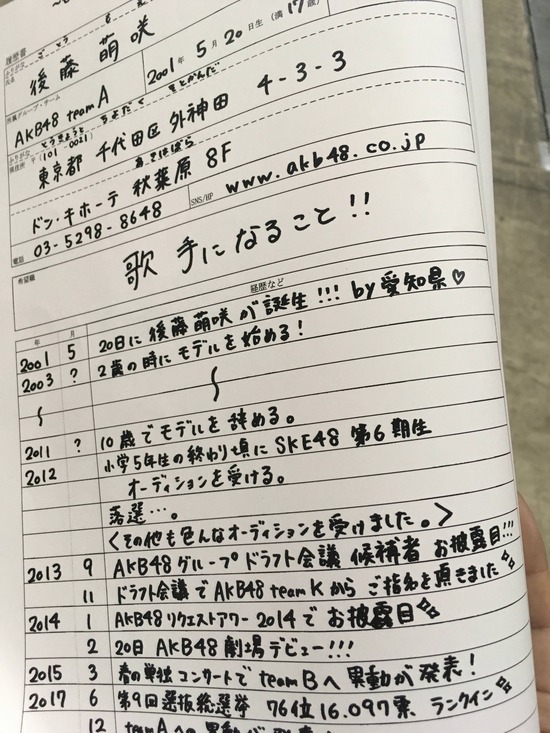 履歴書
ふりがな ご とう も え
氏名 後藤 萌咲
2001年 5月 20日生(満 17歳)
所属グループ・チーム
AKB48 team A
ふりがな とうきょうと ちよだく そとかんだ
現住所 〒(101-0021)
東京都 千代田区 外神田 4-3-3
あきはばら
ドン・キホーテ 秋葉原 8F
電話 03-5298-8648
SNS/HP www.akb48.co.jp
希望職
歌手になること!!
年 月 経歴など
2001 5 20日に後藤萌咲が誕生!!! by愛知県♡
2003 ? 2歳の時にモデルを始める!
〜 〜
2011 ? 10歳でモデルを辞める。
2012 小学5年生の終わり頃にSKE48 第6期生
オーディションを受ける。
落選…。
<その他も色んなオーディションを受けました。>
2013 9 AKB48グループドラフト会議 候補者 お披露目!!!
11 ドラフト会議でAKB48 teamKからご指名を頂きました
2014 1 AKB48リクエストアワー2014でお披露目
2 20日 AKB48劇場デビュー!!!
2015 3 春の単独コンサートでteamBへ異動が発表!
2017 6 第9回選抜総選挙 76位16.097票 ランクイン
12 teamAへの異動が